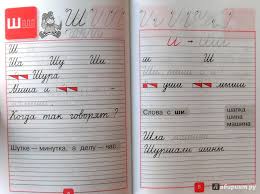 Ш
Ш
Ша Шу Ши
Шура
Миша и
Когда так говорят?
Шутке – минутка, а делу – час.
уши и мыши
Слова с ши.
шапка
шина
машина
Шла
Шуршали шины
Лабиринт.ру